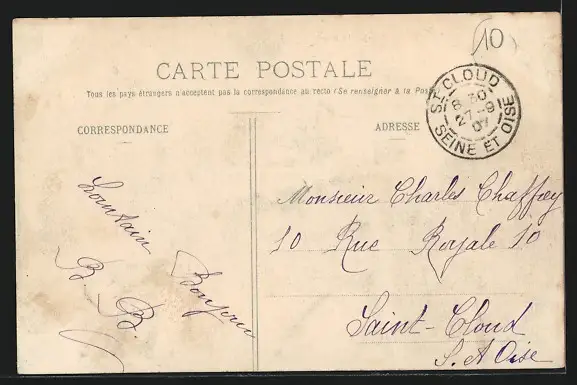 10
CARTE POSTALE
Tous les pays étrangers n'acceptent pas la correspondance au recto (Se renseigner à la Poste
CORRESPONDANCE
ADRESSE
ST CLOUD
8 30
27-9
07
SEINE ET OISE
Lointain
Bonjour
B. B.
Monsieur Charles Chaffrey
10 Rue Royale 10
Saint-Cloud
S. et Oise